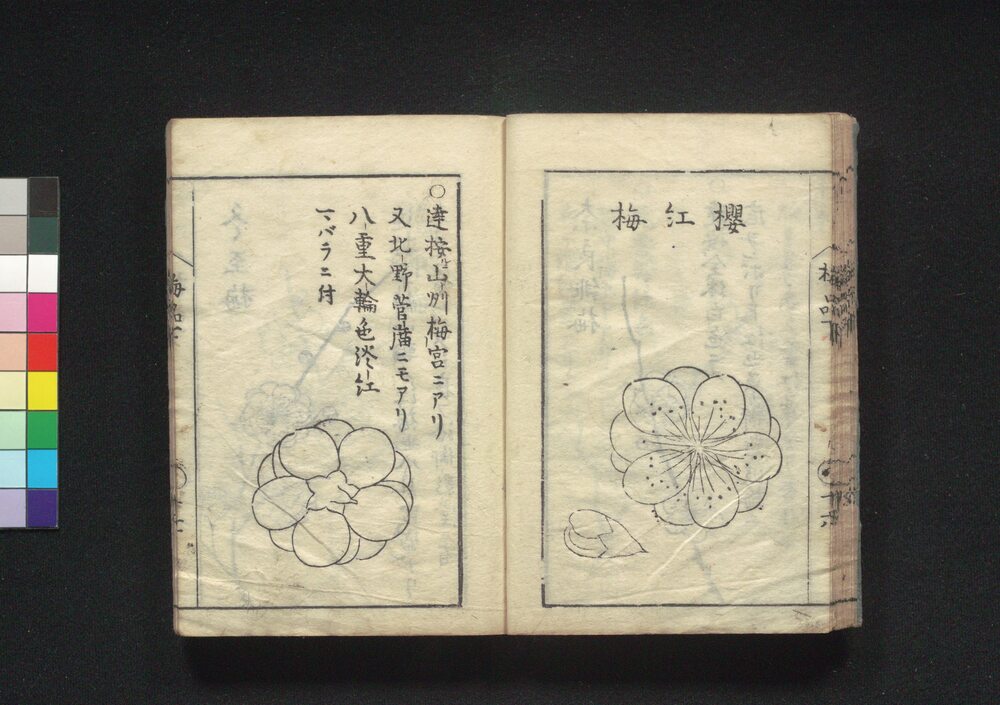 櫻紅梅
梅品下
十六
○達按山州梅宮ニアリ
又北野菅廟ニモアリ
八重大輪色淡紅
一バラニ付